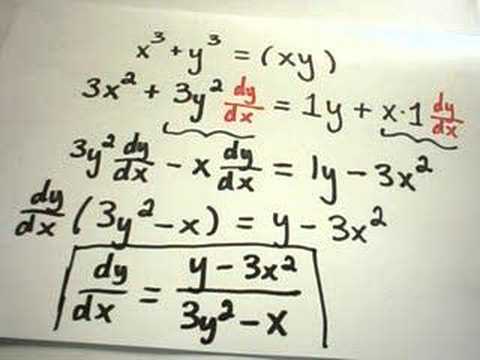 x³ + y³ = (xy)
3x² + 3y² dy/dx = 1y + x·1 dy/dx
3y² dy/dx − x dy/dx = 1y − 3x²
dy/dx (3y² − x) = y − 3x²
dy/dx = (y − 3x²)/(3y² − x)